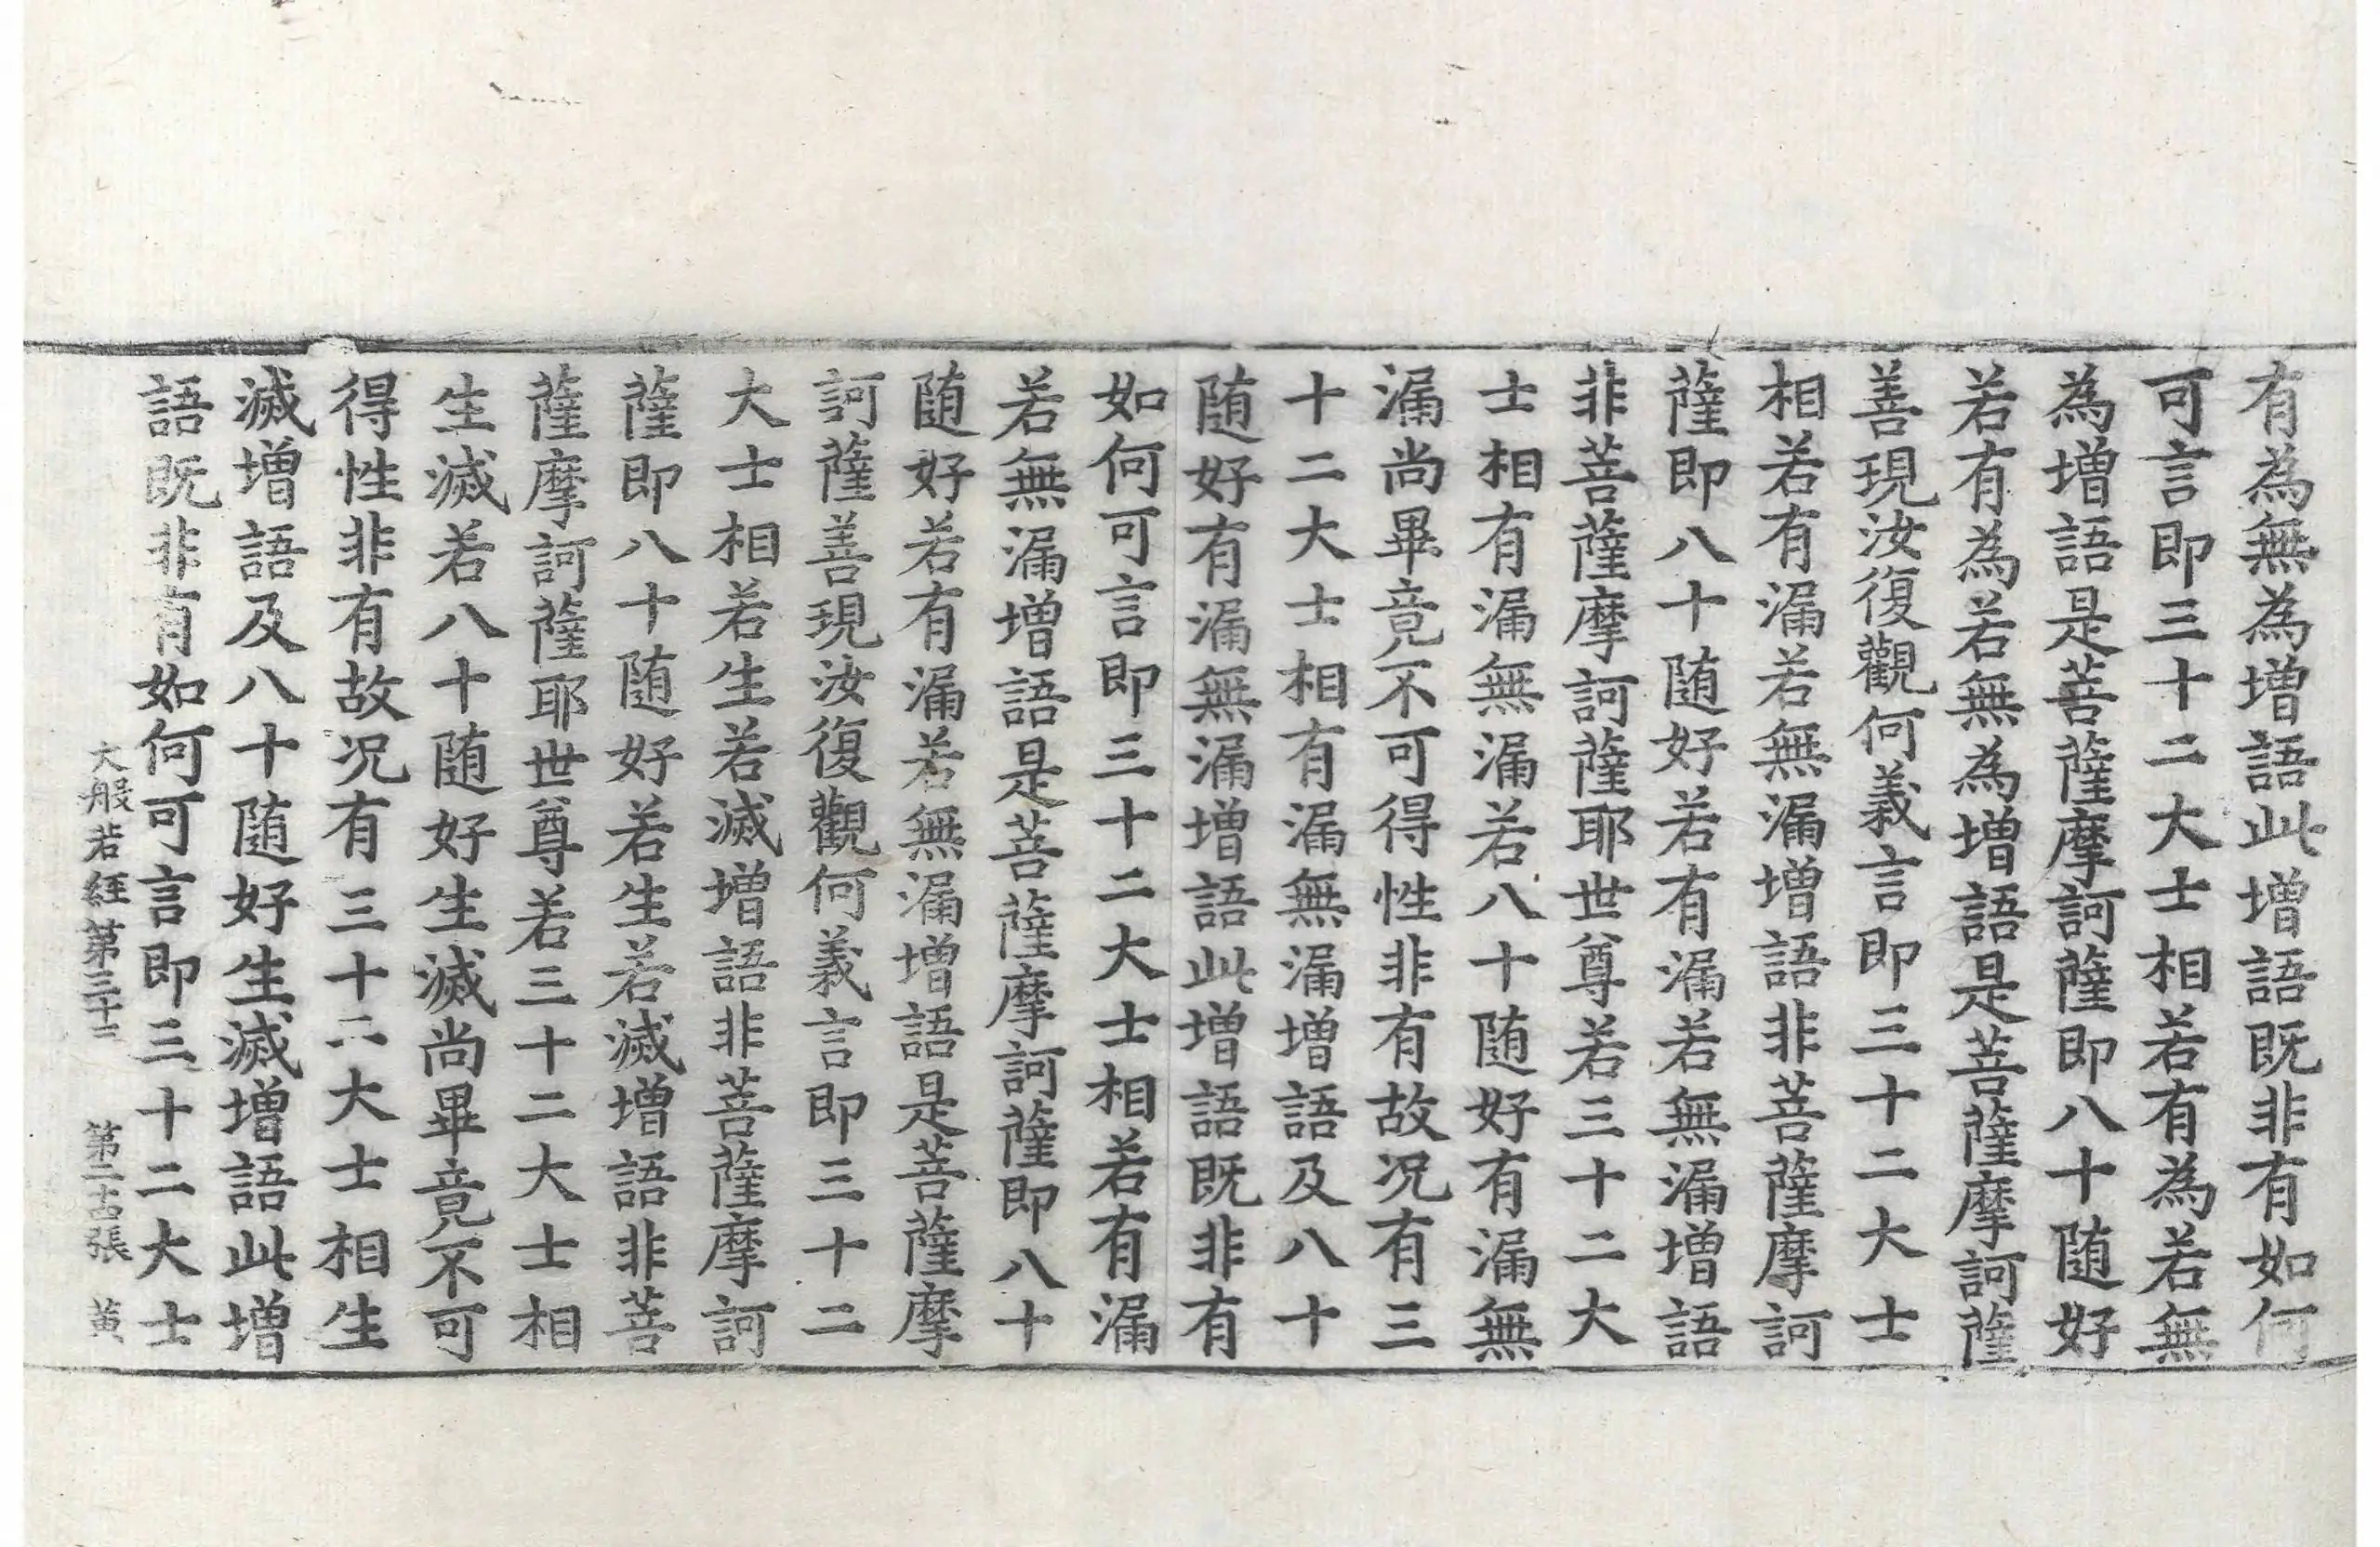 有為無為增語此增語既非有如何
可言即三十二大士相若有為若無
為增語是菩薩摩訶薩即八十随好
若有為若無為增語是菩薩摩訶薩
善現汝復觀何義言即三十二大士
相若有漏若無漏增語非菩薩摩訶
薩即八十随好若有漏若無漏增語
非菩薩摩訶薩耶世尊若三十二大
士相有漏無漏若八十随好有漏無
漏尚畢竟不可得性非有故况有三
十二大士相有漏無漏增語及八十
随好有漏無漏增語此增語既非有
如何可言即三十二大士相若有漏
若無漏增語是菩薩摩訶薩即八十
随好若有漏若無漏增語是菩薩摩
訶薩善現汝復觀何義言即三十二
大士相若生若滅增語非菩薩摩訶
薩即八十随好若生若滅增語非菩
薩摩訶薩耶世尊若三十二大士相
生滅若八十随好生滅尚畢竟不可
得性非有故况有三十二大士相生
滅增語及八十随好生滅增語此增
語既非有如何可言即三十二大士
大般若經第三十三 第二古張 黃